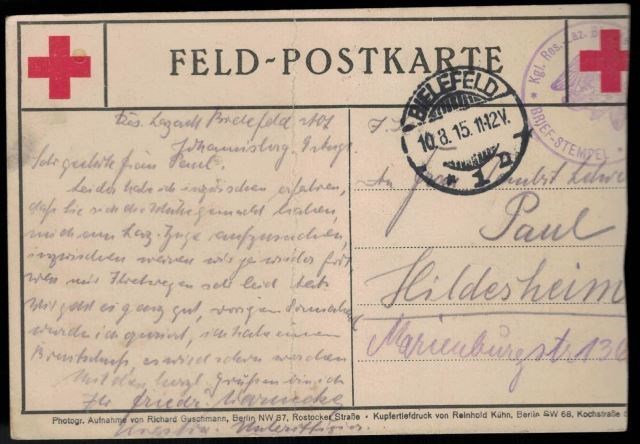 FELD-POSTKARTE
Kgl. Res. Laz.
BRIEF-STEMPEL
BIELEFELD
10.8.15.11-12V.
* 1 b
Res. Lazarett Bielefeld
Johannisburg
Sehr geehrte Frau Paul.
Leider habe ich inzwischen erfahren,
daß Sie sich die Mühe gemacht haben,
mich am Laz. Zuge aufzusuchen,
inzwischen waren wir ja wieder fort
mir Ihretwegen sehr leid
Mir geht es ganz gut, vorigen Sonnabend
wurde ich operiert, ich habe einen
es wird schon werden
Mit den herzl. Grüßen bin ich
Ihr Friedr. Warnecke
Unteroffizier.
An Frau
Paul
Hildesheim
Marienburgstr 136
Photogr. Aufnahme von Richard Guschmann, Berlin NW 87, Rostocker Straße • Kupfertiefdruck von Reinhold Kühn, Berlin SW 68, Kochstraße